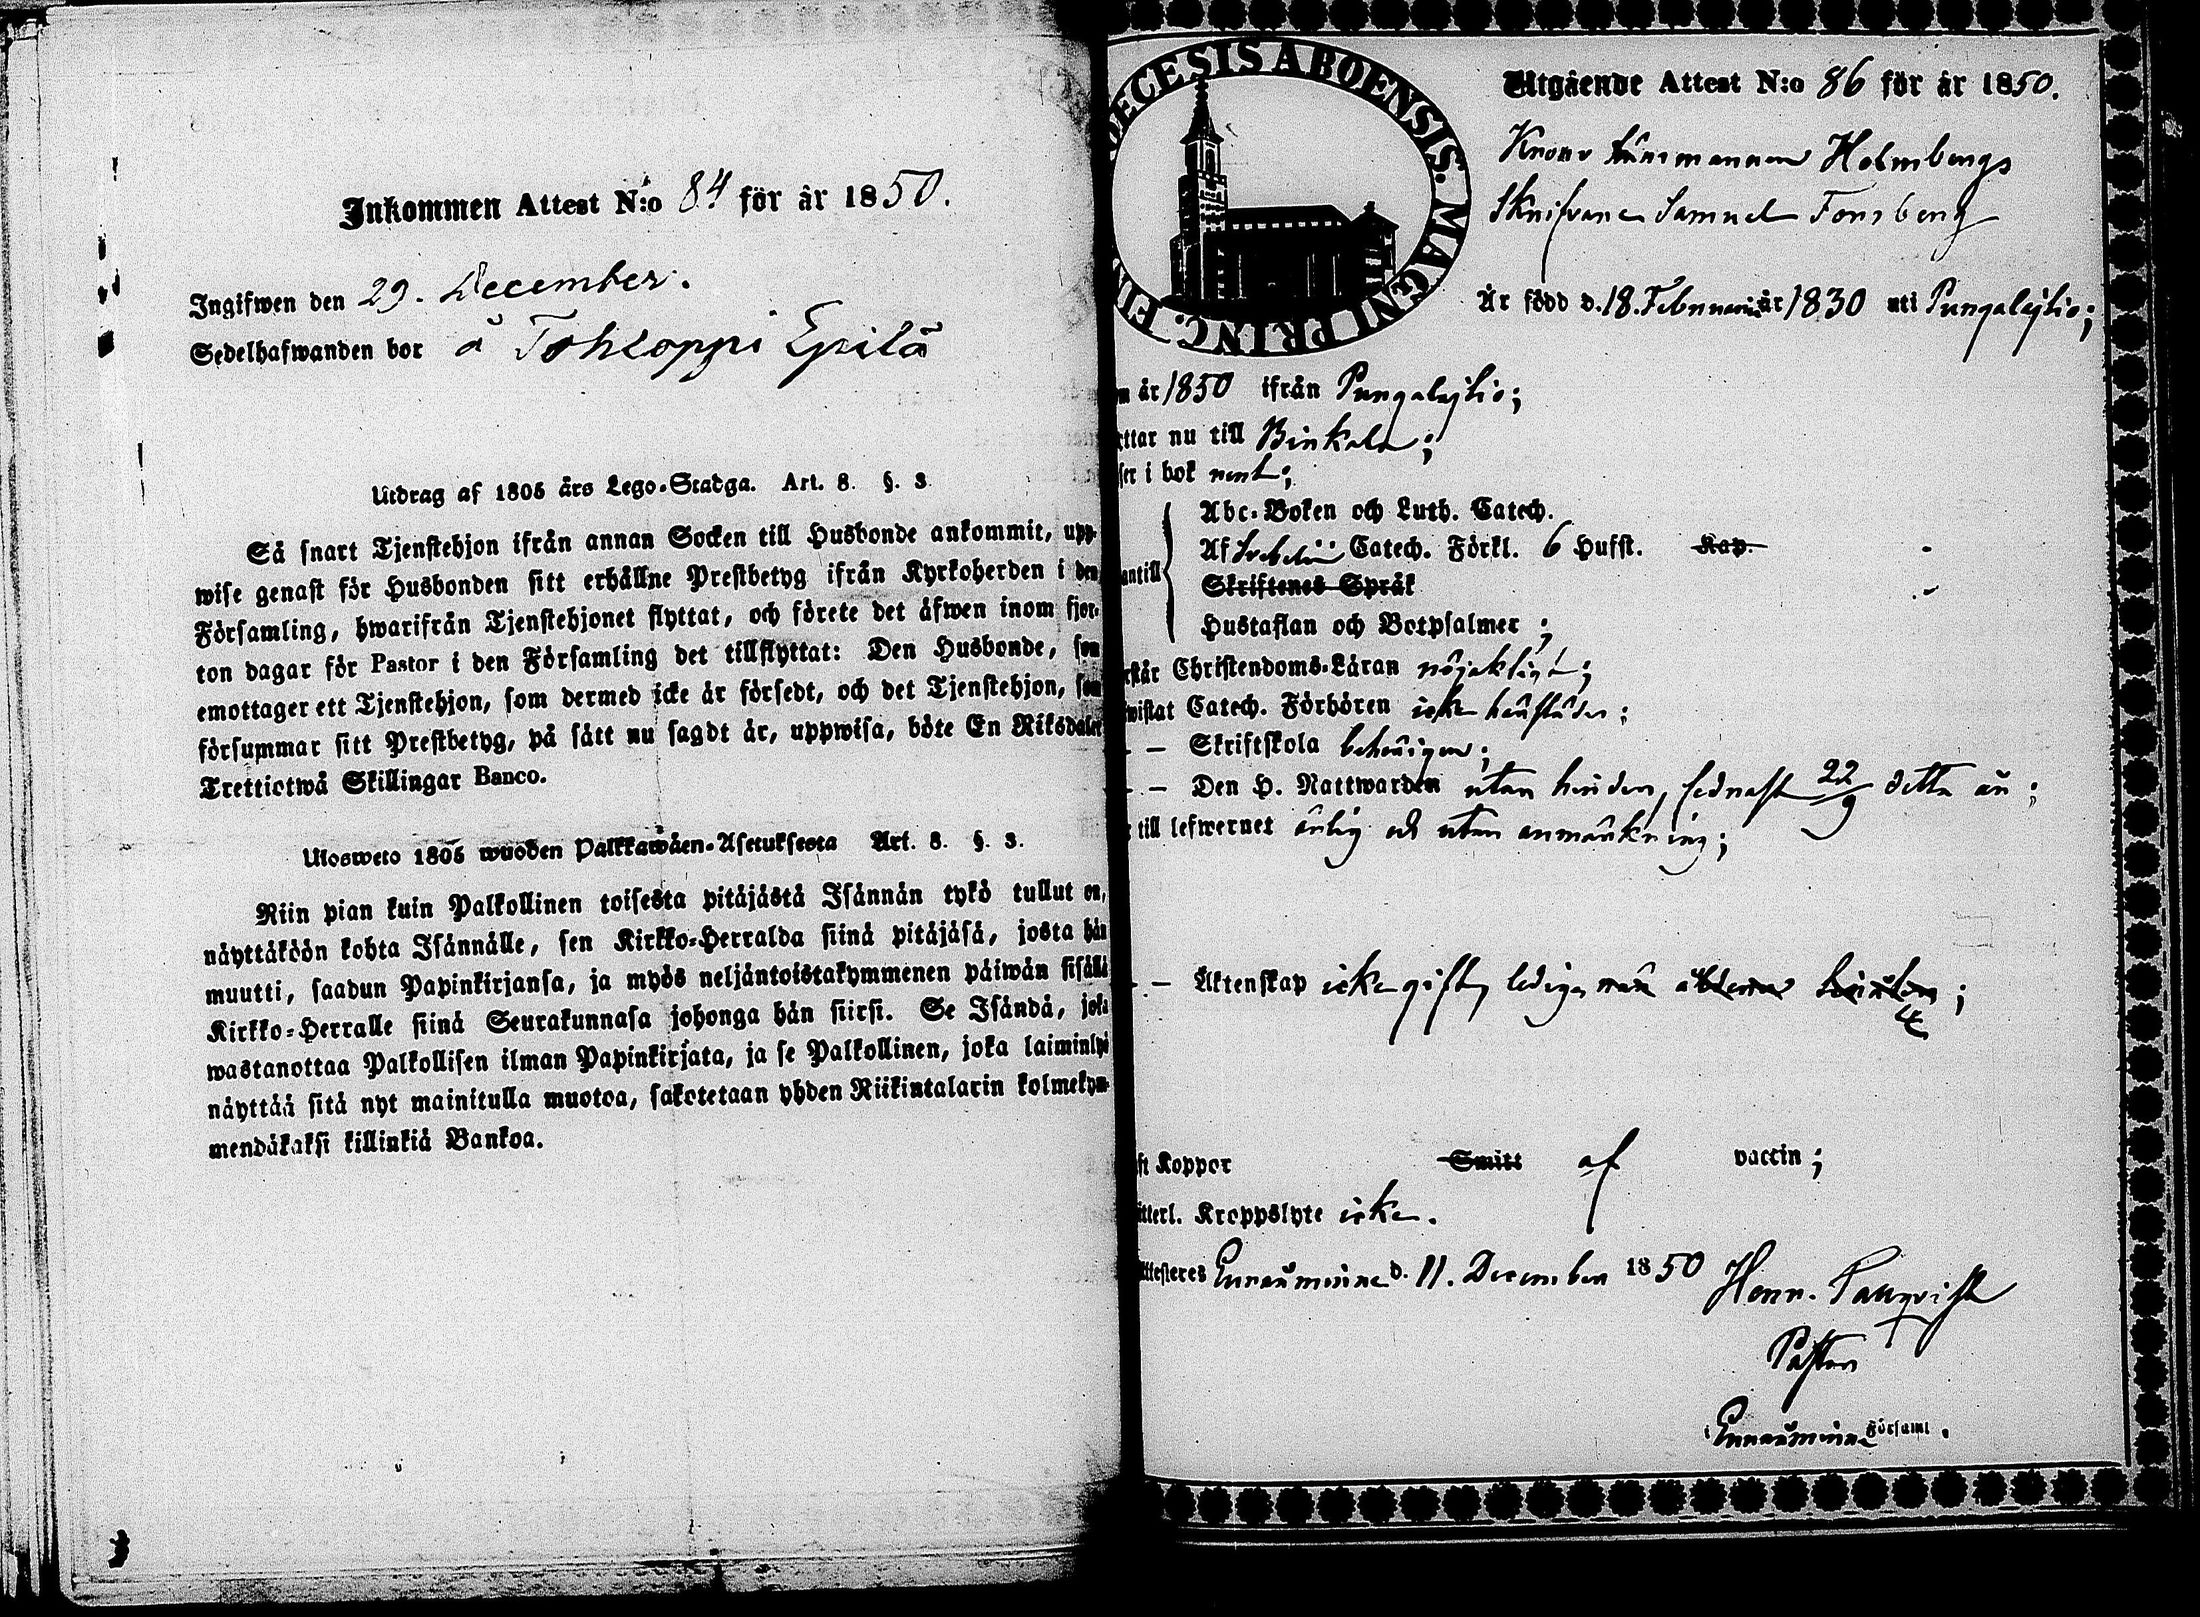 Inkommen Attest N:o 84 för år 1850.
Ingifwen den 29. December.
Sedelhafwanden bor å Tohloppi Epilä
Utdrag af 1805 års Lego-Stadga. Art. 8. §. 3
Så snart Tjenstehjon ifrån annan Socken till Husbonde ankommit, upp-
wise genast för Husbonden sitt erhållne Prestbetyg ifrån Kyrkoherden i den
Församling, hwarifrån Tjenstehjonet flyttat, och förete det äfwen inom fjor-
ton dagar för Pastor i den Församling det tillflyttat: Den Husbonde, som
emottager ett Tjenstehjon, som dermed icke är försedt, och det Tjenstehjon, som
försummar sitt Prestbetyg, på sätt nu sagdt är, uppwisa, böte En Riksdaler
Trettiotwå Skillingar Banco.
Ulosweto 1805 wuoden Palkkawäen-Asetuksesta Art. 8. §. 3.
Niin pian kuin Palkollinen toisesta pitäjästä Isännän tykö tullut on,
näyttäköön kohta Isännälle, sen Kirkko-Herralda siinä pitäjäsä, josta hän
muutti, saadun Papinkirjansa, ja myös neljäntoistakymmenen päiwän sisällä
Kirkko-Herralle siinä Seurakunnasa johonga hän siirsi. Se Isändä, joka
wastanottaa Palkollisen ilman Papinkirjata, ja se Palkollinen, joka laiminlyö
näyttää sitä nyt mainitulla muotoa, sakotetaan yhden Riikintalarin kolmekym-
mendäkaksi killinkiä Bankoa.
ECESIS ABOENSIS. MAGNI PRINC. FI
Utgående Attest N:o 86 för år 1850.
Krono länsmannen Holmbergs
Skrifvare Samuel Forsberg
Är född d. 18. Februarii år 1830 uti Pungalaitio;
år 1850 ifrån Pungalaitio;
ttar nu till Birkala;
ser i bok rent;
Abc-Boken och Luth. Catech.
antill Af Svebelii Catech. Förkl. 6 Hufst. Kap.
Skriftenes Språk
Hustaflan och Botpsalmer;
rstår Christendoms-Läran nöjaktigt;
wistat Catech. Förhören icke härstädes;
— — Skriftskola behörigen;
— — Den H. Nattwarden utan hinder, sednast 22/9 detta år;
till lefwernet ärlig och utan anmärkning;
— — Äktenskap icke gift, ledig;
ft Koppor Smitt af vaccin;
itterl. Kroppslyte icke.
Attesteres d. 11. December 1850 Henr.
Pastor
i Församl.